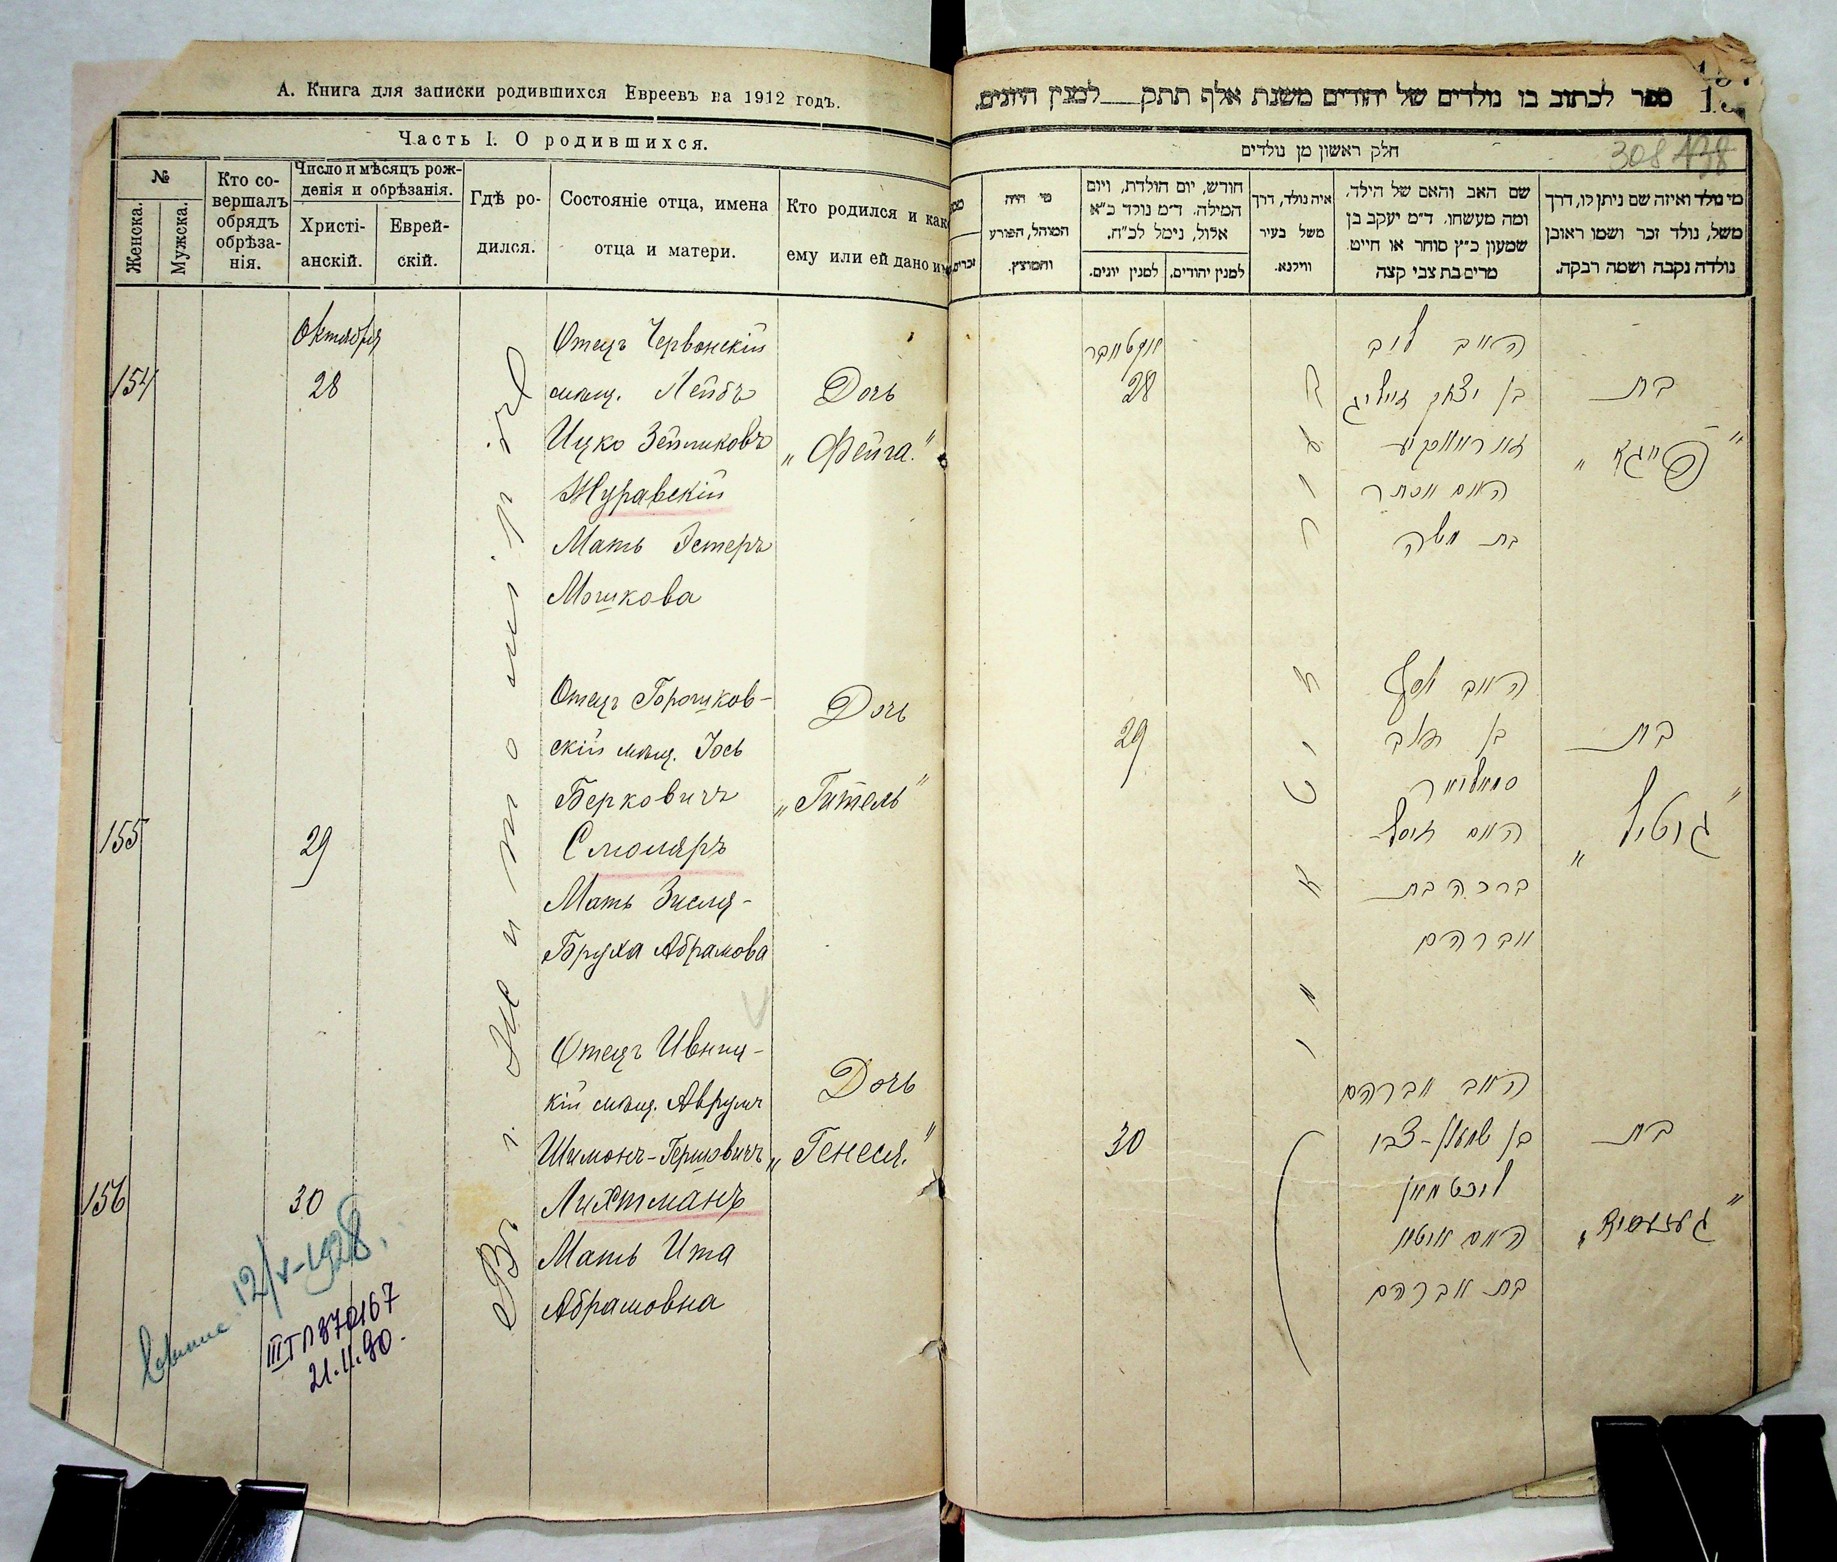 А. Книга для записки родившихся Евреевъ на 1912 годъ.
Часть I. О родившихся.
№
Женска.
Мужска.
Кто со-
вершалъ
обрядъ
обрѣза-
нія.
Число и мѣсяцъ рож-
денія и обрѣзанія.
Христі-
анскій.
Еврей-
скій.
Гдѣ ро-
дился.
Состояніе отца, имена
отца и матери.
Кто родился и как
ему или ей дано и
Октября
154
28
Отецъ Червонскій
мѣщ. Лейбъ
Ицко Зейликовъ
Журавскій
Мать Эстеръ
Мошкова
Дочь
„Фейга."
155
29
Отецъ Горошков-
скій мѣщ. Іось
Берковичъ
Смоляръ
Мать Зисля-
Бруха Абрамова
Дочь
„Гитель"
156
30
Отецъ Ивниц-
кій мѣщ. Аврумъ
Шимонъ-Гершовичъ
Лихтманъ
Мать Ита
Абрамовна
Дочь
„Генеся."
Въ г. Житомірѣ
12/V-1928.
III ТП 870167
21.II.90.
ספר לכתוב בו נולדים של יהודים משנת אלף תתק למנין היונים.
חלק ראשון מן נולדים
308
מי נולד ואיזה שם ניתן לו, דרך
משל, נולד זכר ושמו ראובן
נולדה נקבה ושמה רבקה.
שם האב והאם של הילד.
ומה מעשהו. ד״מ יעקב בן
שמעון כ״ץ סוחר או חייט.
מרים בת צבי קצה
איה נולד, דרך
משל בעיר
ווילנא.
חודש, יום הולדת, ויום
המילה. ד״מ נולד כ״א
אלול, נימל לכ״ח.
למנין יהודים.
למנין יונים.
מי היה
המוהל, הפורע
והמוצץ.
אקטאבר
28
האב ליב
בן יצחק זייליג
זוראווסקי
האם אסתר
בת משה
בת
„פייגא"
29
האב יוסף
בן
סמאליאר
האם זיסל
ברכה בת
אברהם
בת
„גיטיל"
30
האב אברהם
בן שמעון-צבי
ליכטמאן
האם איטא
בת אברהם
בת
„גענעסיא"